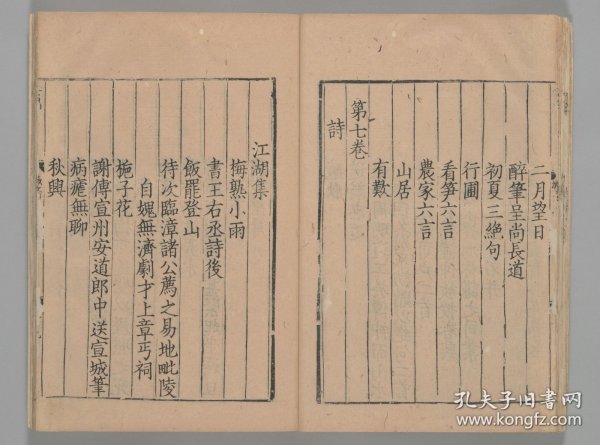 二月望日
醉筆呈尚長道
初夏三絶句
行圃
看笋六言
農家六言
山居
有歎
第七卷
詩
江湖集
梅熟小雨
書王右丞詩後
飯罷登山
待次臨漳諸公薦之易地毗陵
自媿無濟劇才上章丐祠
梔子花
謝傅宣州安道郎中送宣城筆
病瘧無聊
秋興
孔夫子旧书网
www.kongfz.com